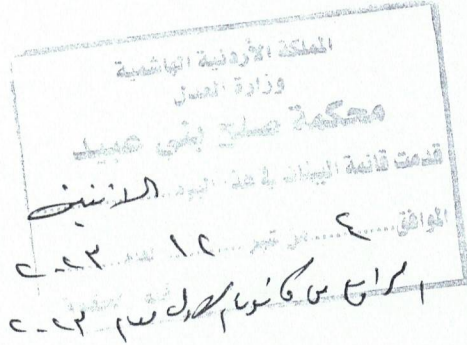 المملكة الأردنية الهاشمية
وزارة العدل
محكمة صلح بني عبيد
قدمت قائمة البينات في هذا اليوم الاثنين
الموافق ٤ من شهر ١٢ لعام ٢٠٢٣
الرابع من كانون الاول لعام ٢٠٢٣